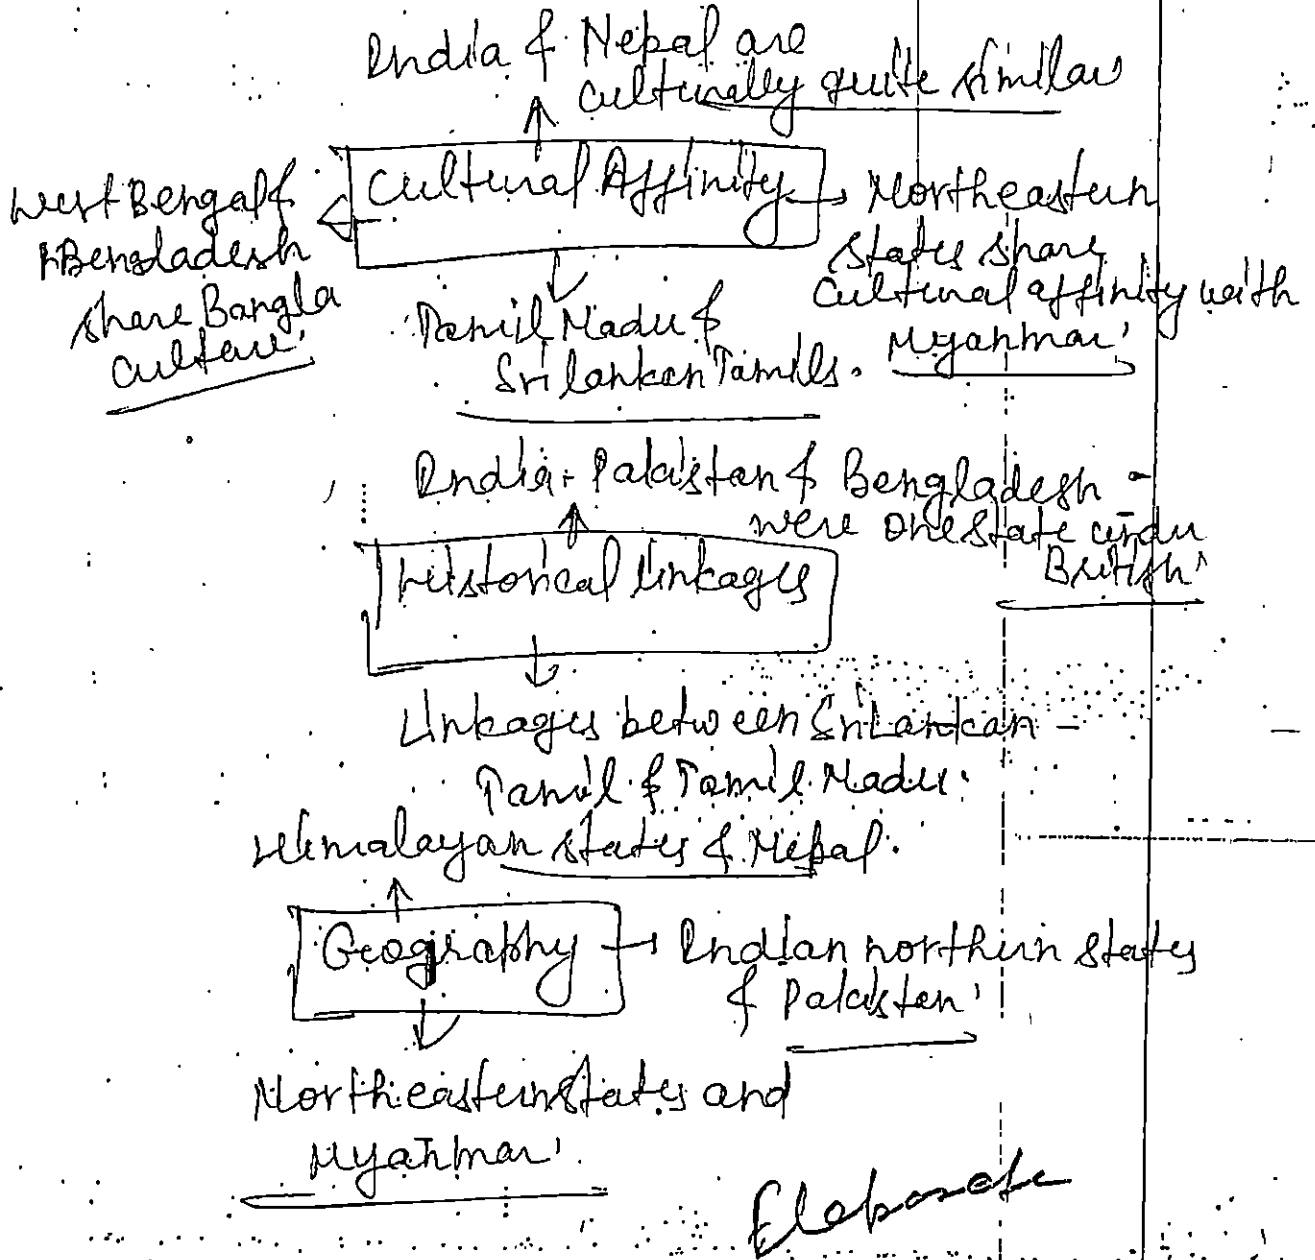 India & Nepal are
culturally quite similar
Cultural Affinity
West Bengal &
Bengladesh
share Bangla
culture.
Northeastern
states share
cultural affinity with
Myanmar.
Tamil Nadu &
Sri lankan Tamils.
India, Pakistan & Bengladesh -
were one state under
British.
Historical linkages
Linkages between Sri Lankan -
Tamil & Tamil Nadu.
Himalayan states & Nepal.
Geography
Indian northern states
& Pakistan.
Northeastern states and
Myanmar.
Elaborate